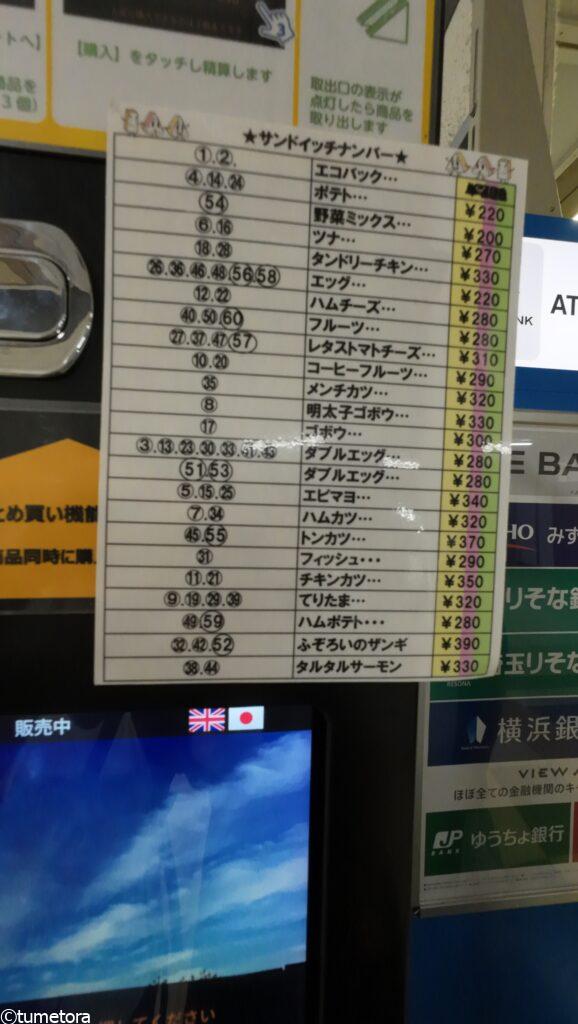 トへ】
【購入】をタッチし精算します
商品を
3個）
取出口の表示が
点灯したら商品を
取り出します
3
★サンドイッチナンバー★
①.②. エコバック…
④.⑭.㉔ ポテト… ￥220
㊴ 野菜ミックス… ￥200
⑥.⑯ ツナ… ￥270
⑱.㉘ タンドリーチキン… ￥330
㉖.㊱.㊻.㊽.(56)(58) エッグ… ￥220
⑫.㉒ ハムチーズ… ￥280
㊵.㊿.(60) フルーツ… ￥280
㉗.㊲.㊼.(57) レタストマトチーズ… ￥310
⑩.⑳ コーヒーフルーツ… ￥290
㉟ メンチカツ… ￥320
⑧ 明太子ゴボウ… ￥330
⑰ ゴボウ… ￥300
③.⑬.㉓.㉚.㉝.㊶.㊸ ダブルエッグ… ￥280
(51)(53) ダブルエッグ… ￥280
⑤.⑮.㉕ エビマヨ… ￥340
⑦.㉞ ハムカツ… ￥320
㊺.(55) トンカツ… ￥370
㉛ フィッシュ・・・ ￥290
⑪.㉑ チキンカツ… ￥350
⑨.⑲.㉙.㊴ てりたま… ￥320
㊾.(59) ハムポテト・・・ ￥280
㉜.㊷.(52) ふぞろいのザンギ ￥390
㊳.㊹ タルタルサーモン ￥330
とめ買い機能
商品同時に購
販売中
AT
NK
E BA
HO みず
りそな銀
埼玉りそ
RESONA
横浜銀
VIEW
ほぼ全ての金融機関のキ
JP
BANK
ゆうちょ銀行
ください
©tumetora